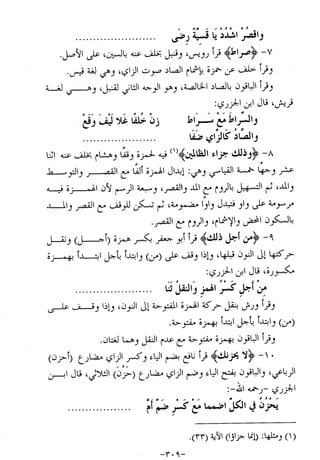 واقصر اشدد يا قسية رضى ......................
٧- ﴿صراط﴾ قرأ رويس، وقنبل بخلف عنه بالسين، على الأصل.
وقرأ خلف عن حمزة بإشمام الصاد صوت الزاي، وهي لغة قيس.
وقرأ الباقون بالصاد الخالصة، وهو الوجه الثاني لقنبل، وهـــي لغـــة
قريش، قال ابن الجزري:
والسراط مع ســـراط زن خلفا غلا كيف وقع
والصاد كالزاي ضفا ......................
٨- ﴿وذلك جزاء الظالمين﴾(١) فيه لحمزة وقفا وهشام بخلف عنه اثنا
عشر وجها خمسة القياسي وهي: إبدال الهمزة ألفا مع القصـــر والتوســـط
والمد، ثم التسهيل بالروم مع المد والقصر، وسبعة الرسم لأن الهمـــزة فيـــه
مرسومة على واو فتبدل واوا مضمومة، ثم تسكن للوقف مع القصر والمـــد
بالسكون المحض والإشمام، والروم مع القصر.
٩- ﴿من أجل ذلك﴾ قرأ أبو جعفر بكسر همزة (أجـــل) ونقـــل
حركتها إلى النون قبلها، وإذا وقف على (من) وابتدأ بأجل ابتـــدأ بهمـــزة
مكسورة، قال ابن الجزري:
من أجل كسر الهمز والنقل ثنا ......................
وقرأ ورش بنقل حركة الهمزة المفتوحة إلى النون، وإذا وقـــف علـــى
(من) وابتدأ بأجل ابتدأ بهمزة مفتوحة.
وقرأ الباقون بهمزة مفتوحة مع عدم النقل وهما لغتان.
١٠- ﴿لا يحزنك﴾ قرأ نافع بضم الياء وكسر الزاي مضارع (أحزن)
الرباعي، والباقون بفتح الياء وضم الزاي مضارع (حزن) الثلاثي، قال ابـــن
الجزري -رحمه الله-:
يحزن في الكل اضمما مع كسر ضم أم ......................
(١) ومثلها: (إنما جزاؤا) الآية (٣٣).
-٣٠٩-